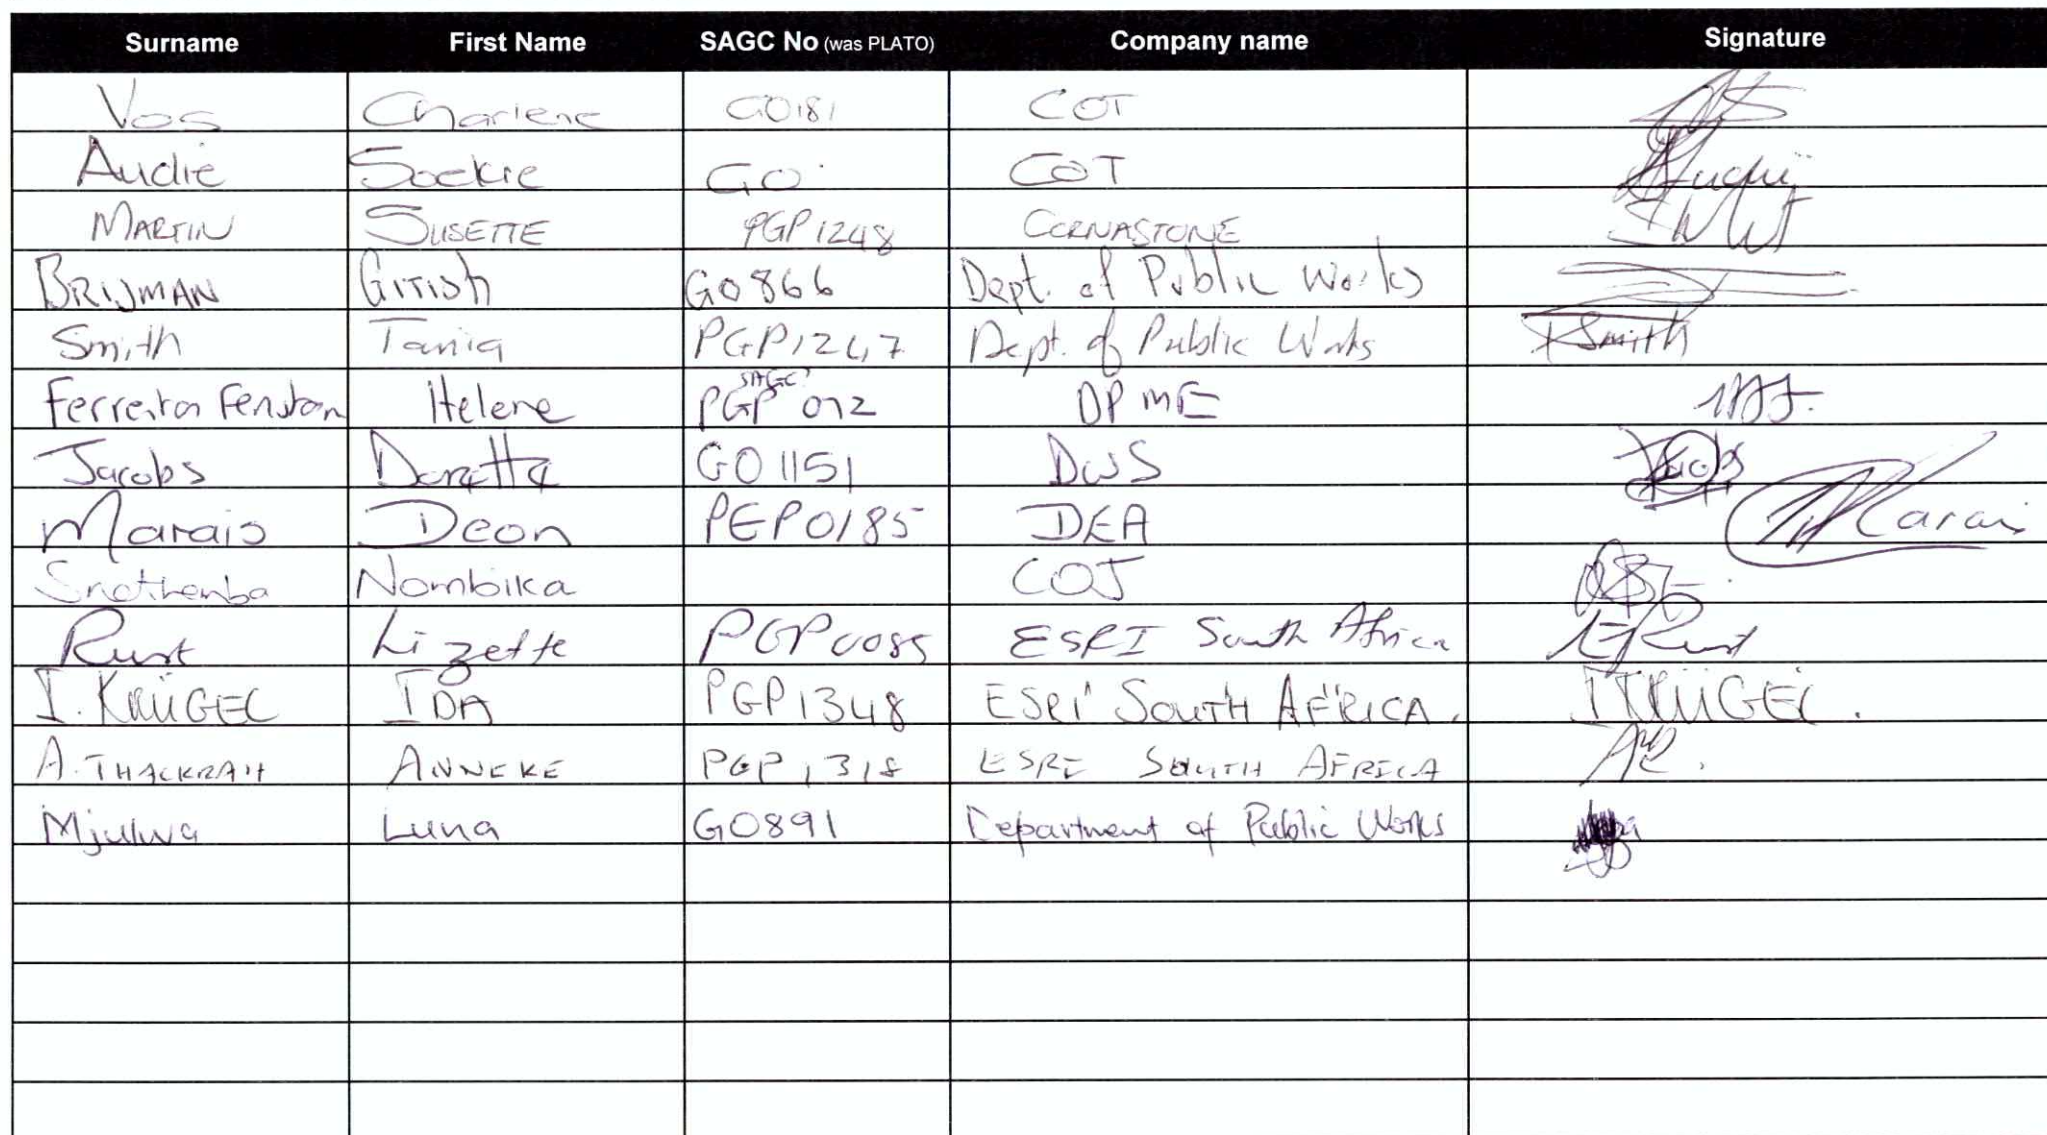 Surname First Name SAGC No (was PLATO) Company name Signature
Vos Charlene GO181 COT
Audie Soekie GO COT Audie
MARTIN SUSETTE PGP1248 CORNASTONE
BRIJMAN Girish GO866 Dept. of Public Works
Smith Tania PGP1247 Dept. of Public Works TSmith
Ferreira Helene PGP SAGC 072 DPME
Jacobs Doretta GO1151 DWS Jacobs
Marais Deon PEP0185 DEA Marais
Nombika COJ
Rust Lizette PGP0085 ESRI South Africa Rust
I. KRÜGER IDA PGP1348 ESRI SOUTH AFRICA. I KRÜGER.
A. THACKRAH ANNEKE PGP1318 ESRI SOUTH AFRICA
Mjulwa Luna GO891 Department of Public Works